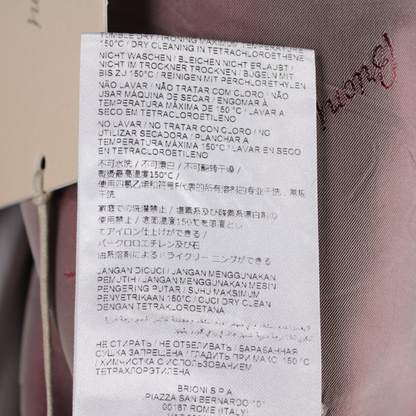 TUMBLE DRY / IRONING MAXIMUM TEMPERATURE
150°C / DRY CLEANING IN TETRACHLOROETHENE
NICHT WASCHEN / BLEICHEN NICHT ERLAUBT /
NICHT IM TROCKNER TROCKNEN / BÜGELN MIT
BIS ZU 150°C / REINIGEN MIT PERCHLORETHYLEN
NÃO LAVAR / NÃO TRATAR COM CLORO / NÃO
USAR MÁQUINA DE SECAR / ENGOMAR À
TEMPERATURA MÁXIMA DE 150 °C / LAVAR A
SECO EM TETRACLOROETILENO
NO LAVAR / NO TRATAR CON CLORO / NO
UTILIZAR SECADORA / PLANCHAR A
TEMPERATURA MÁXIMA 150°C / LAVAR EN SECO
EN TETRACLOROETILENO
不可水洗 / 不可漂白 / 不可转笼干燥 /
熨烫最高温度150°C /
使用四氯乙烯和符号F代表的所有溶剂的专业干洗
干洗
家庭での洗濯禁止 / 塩素系及び酵素系漂白剤の
使用禁止 / 温度150℃を限度とし
てアイロン仕上げができる /
パークロロエチレン及び石
油系溶剤によるドライクリーニングができる
JANGAN DICUCI / JANGAN MENGGUNAKAN
PEMUTIH / JANGAN MENGGUNAKAN MESIN
PENGERING PUTAR / SUHU MAKSIMUM
PENYETRIKAAN 150°C / CUCI DRY CLEAN
DENGAN TETRAKLOROETANA
НЕ СТИРАТЬ / НЕ ОТБЕЛИВАТЬ / БАРАБАННАЯ
СУШКА ЗАПРЕЩЕНА / ГЛАДИТЬ ПРИ МАКС. 150 °C
/ ХИМЧИСТКА С ИСПОЛЬЗОВАНИЕМ
ТЕТРАХЛОРЭТИЛЕНА
BRIONI S.P.A.
PIAZZA SAN BERNARDO "10"
00187 ROME (ITALY)
Brioni